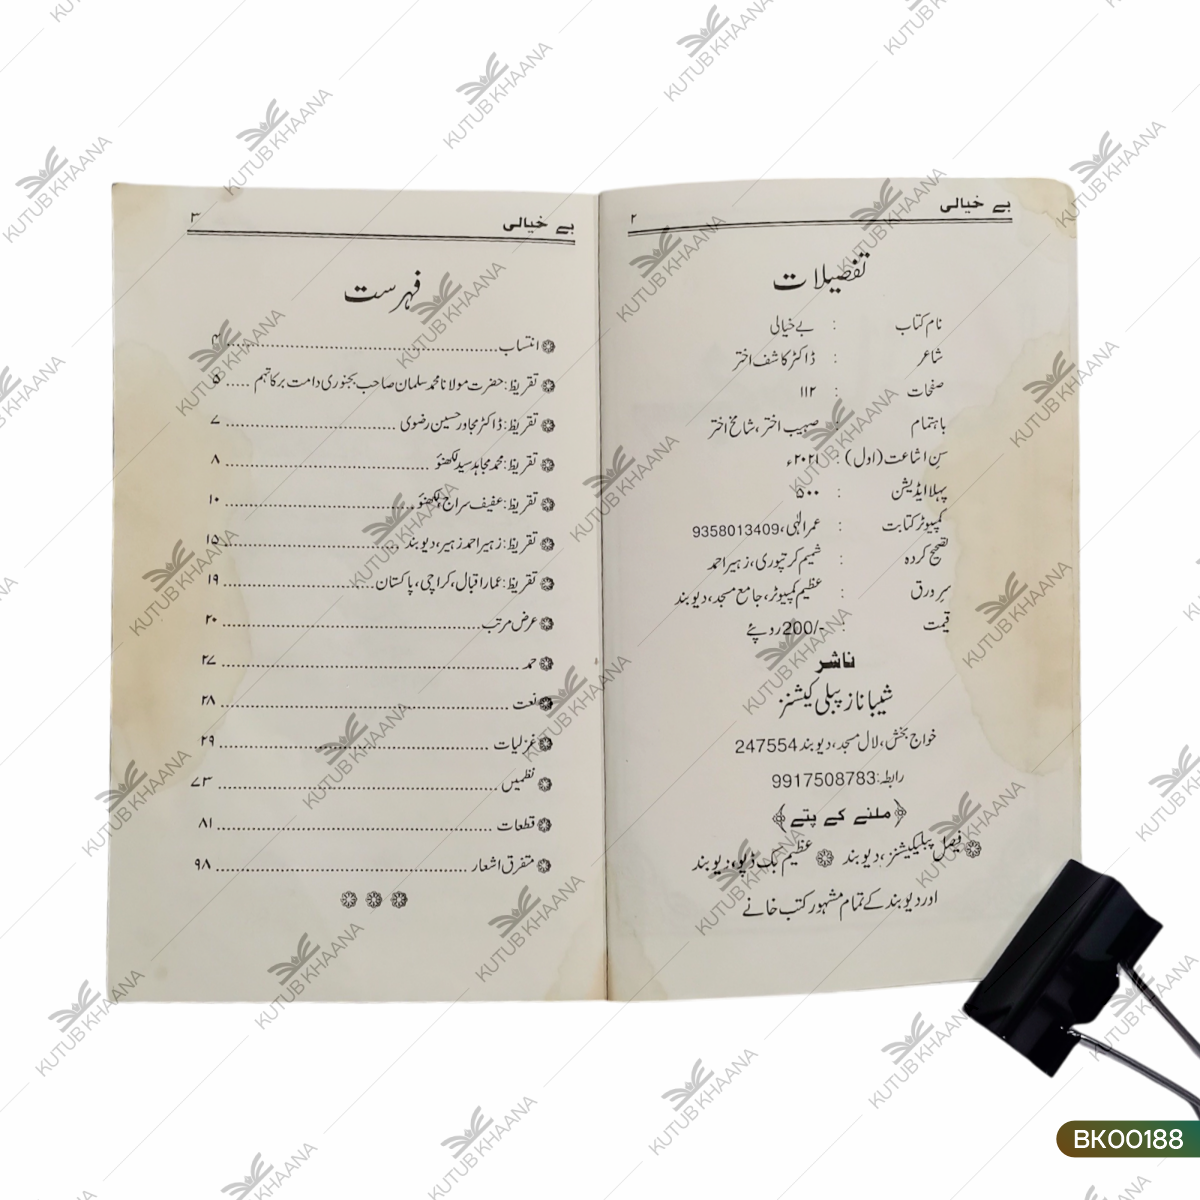 بے خیالی ۲
تفصیلات
نام کتاب : بے خیالی
شاعر : ڈاکٹر کاشف اختر
صفحات : ۱۱۲
باہتمام : صہیب اختر، شامخ اختر
سِن اشاعت (اول) : ۲۰۲۱ء
پہلا ایڈیشن : ۵۰۰
کمپیوٹر کتابت : عمر الٰہی، 9358013409
تصحیح کردہ : شمیم کرتپوری، زہیر احمد
سر ورق : عظیم کمپیوٹر، جامع مسجد، دیوبند
قیمت : 200/- روپئے
ناشر
شیبا ناز پبلی کیشنز
خواج بخش، لال مسجد، دیوبند 247554
رابطہ: 9917508783
﴿ملنے کے پتے﴾
فیصل پبلیکیشنز، دیوبند عظیم بک ڈپو، دیوبند
اور دیوبند کے تمام مشہور کتب خانے
بے خیالی ۳
فہرست
انتساب ۴
تقریظ: حضرت مولانا محمد سلمان صاحب بجنوری دامت برکاتہم ۵
تقریظ: ڈاکٹر مجاور حسین رضوی ۷
تقریظ: محمد مجاہد سید لکھنؤ ۸
تقریظ: عفیف سراج، لکھنؤ ۱۰
تقریظ: زہیر احمد زہیر، دیوبند ۱۵
تقریظ: عمار اقبال، کراچی، پاکستان ۱۹
عرض مرتب ۲۰
حمد ۲۷
نعت ۲۸
غزلیات ۲۹
نظمیں ۷۳
قطعات ۸۱
متفرق اشعار ۹۸
KUTUB KHAANA
BK00188